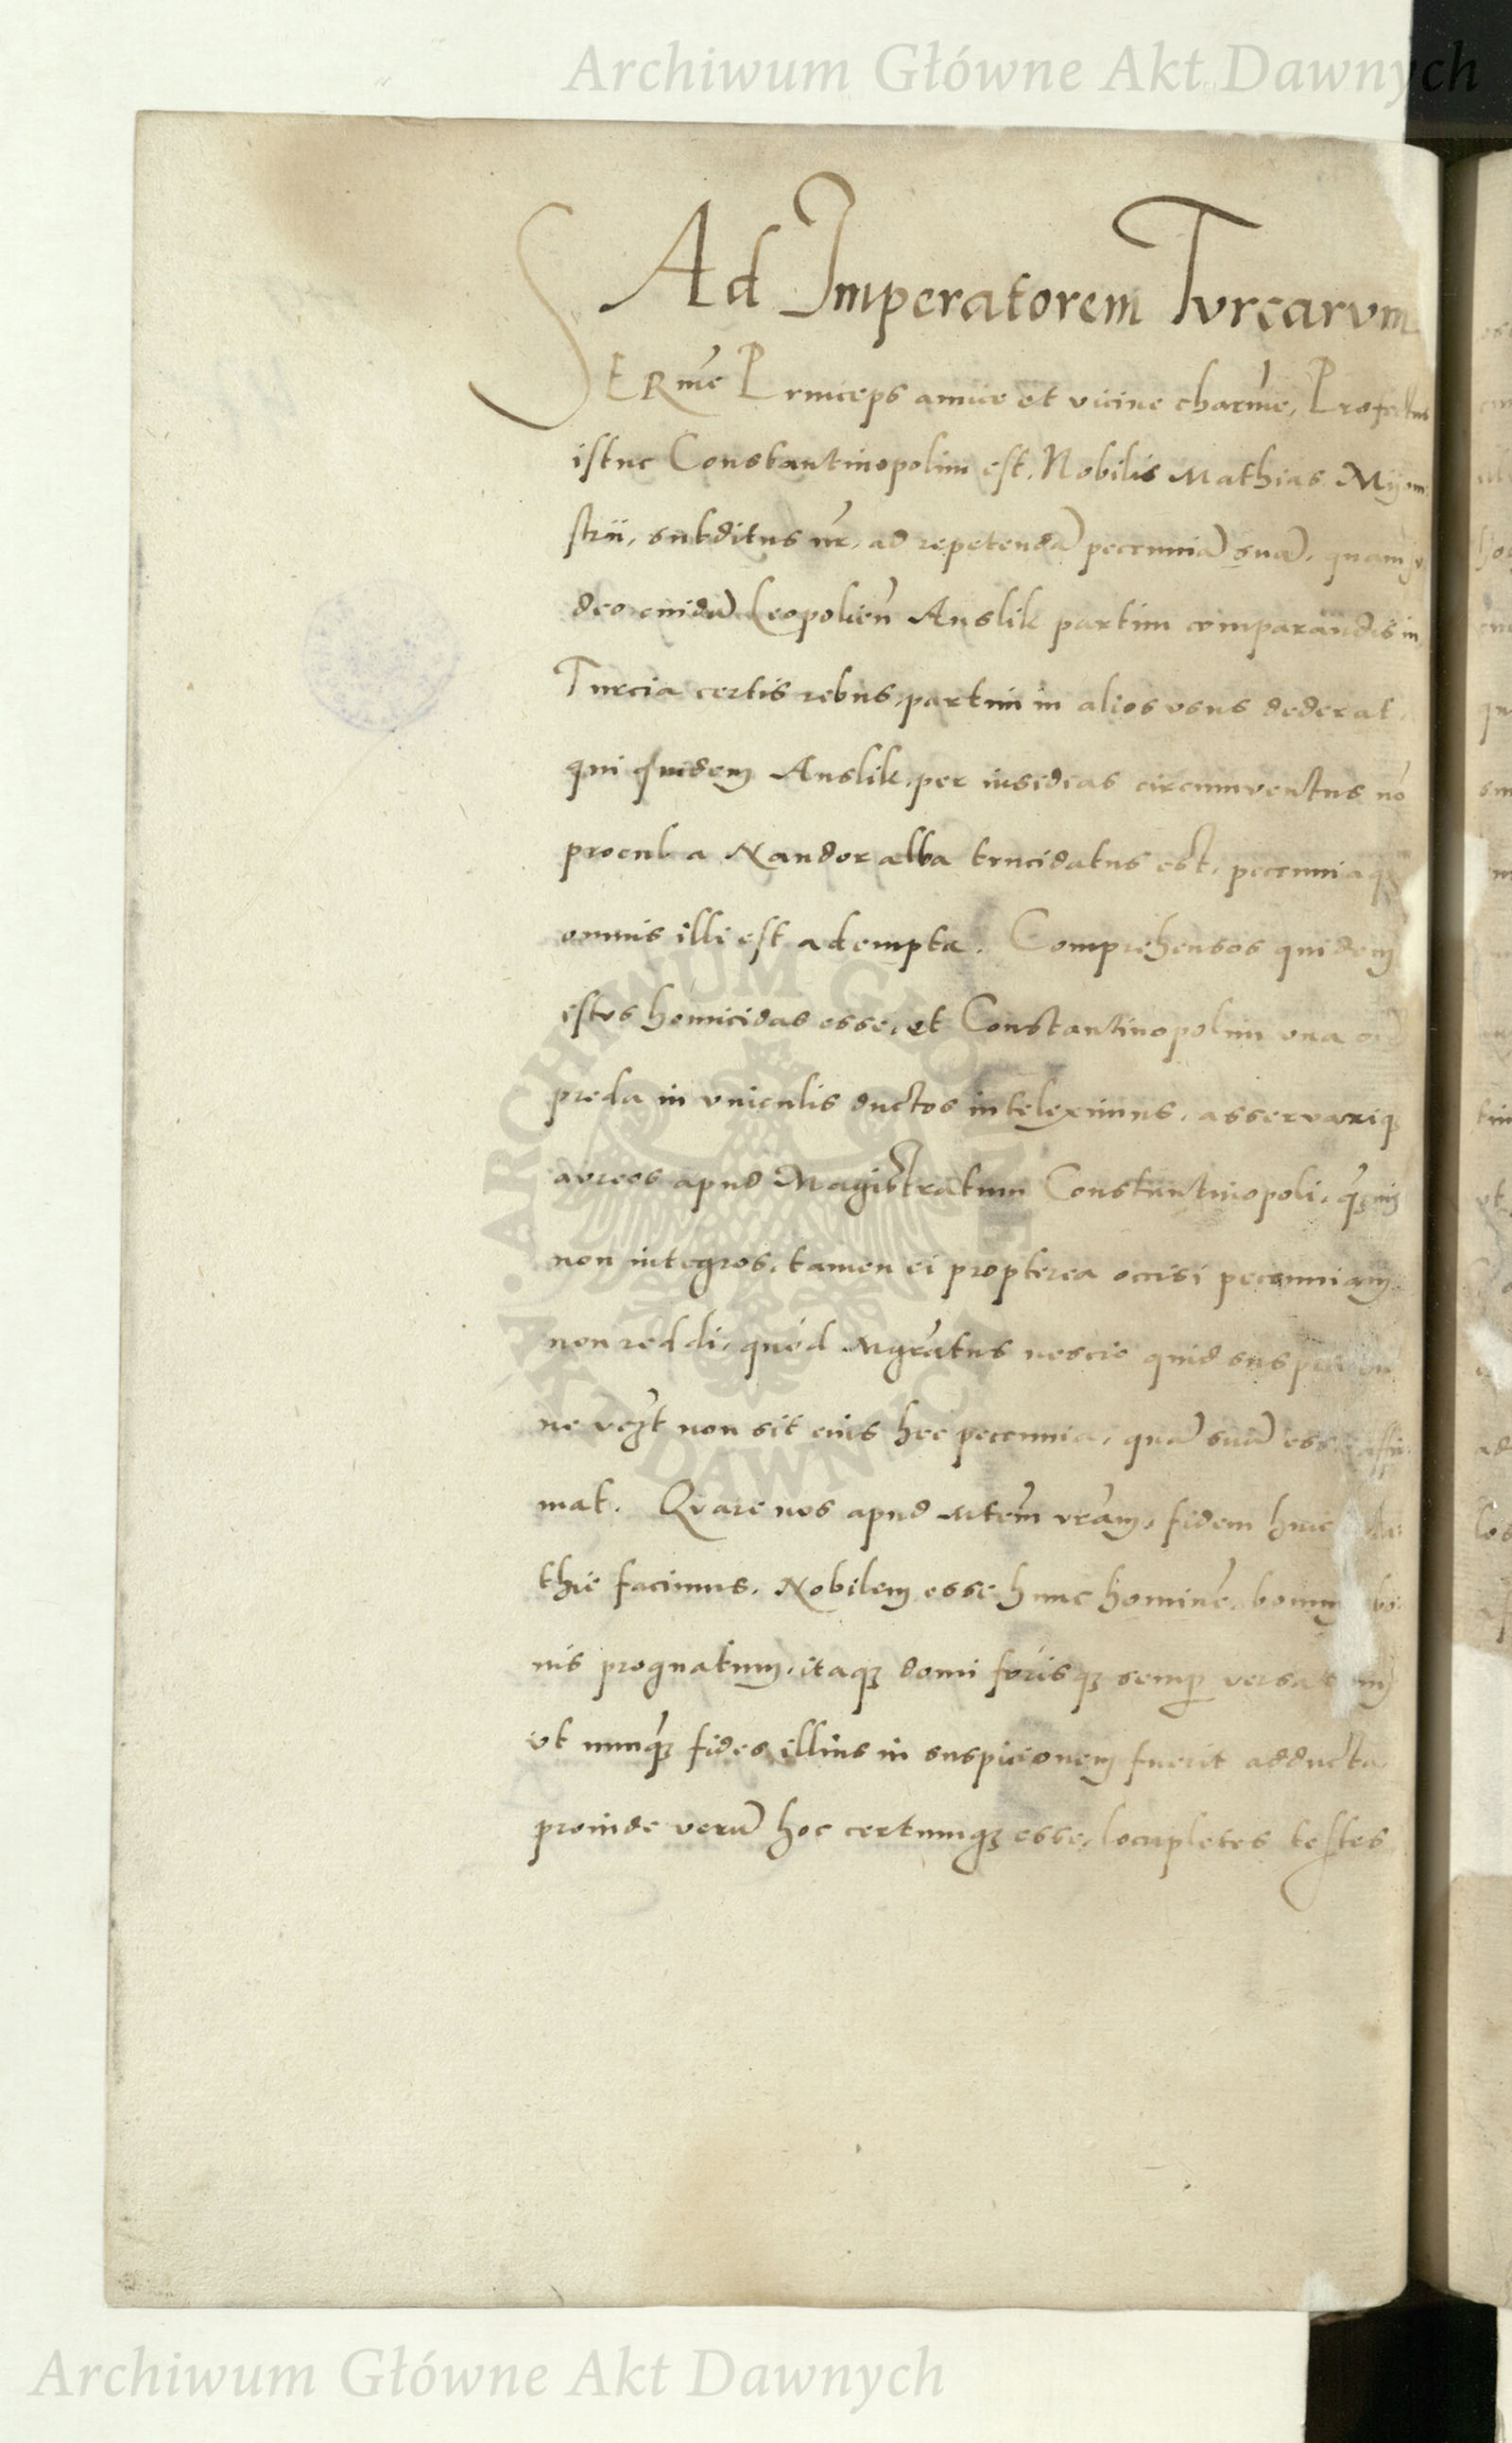 Archiwum Główne Akt Dawnych
Ad Imperatorem Tvrcarvm
SERme Princeps amice et vicine charme, Profectus
istuc Constantinopolim est, Nobilis Mathias Myom
strii, subditus nr, ad repetendā pecuniā suā, quam Ju
deo cuidā Leopolien Anslik partim comparandis in
Turcia certis rebus, partim in alios usus dederat,
qui quidem Anslik, per insidias circumventus nō
procul a Nandor alba trucidatus est, pecuniaq3
omnis illi est adempta. Comprehensos quidem
istos homicidas esse, et Constantinopolim una
preda in vinculis ductos inteleximus, asservariq3
aureos apud Magistratum Constantinopoli,
non integros, tamen ei propterea occisi pecuniam
non reddi, quod Mgratus nescio quid
ne non sit eius hec pecunia, quā suā esse affir:
mat. Qvare nos apud Mtem vram, fidem huic Ma:
thie facimus, Nobilem esse hunc hominē, bonum bo:
nis prognatum, itaq3 domi forisq3 semp versatum
vt nunq3 fides illius in suspicionem fuerit adducta,
proinde verū hoc certumq3 esse, locupletes testes
ARCHIWUM GŁÓWNE AKT DAWNYCH
Archiwum Główne Akt Dawnych